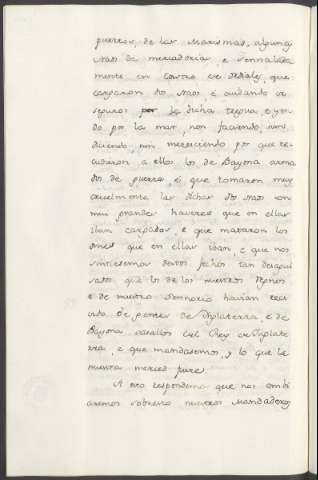 puertos, de las Marismas, algunas
naos de mercadoria, e sennalada
mente en Castro de Urdiales, que
cargaron dos naos e cuidando ir
seguros por la dicha tregua e yen
do por la mar, non faciendo, nin
diciendo, nin meresciendo por que re
cudieron a ellos los de Bayona arma
dos de guerra, e que tomaron muy
cruelmente las dichas dos naos con
mui grandes haveres que en ellas
iban cargados, e que mataron los
omes que en ellas iban, e que nos
sintiesemos destos fechos tan desagui
sados que los de los nuestros regnos
e de nuestro Sennorio havian resci
vido de gentes de Inglaterra e de
Bayona vasallos del Rey de Inglate
rra, e que mandasemos, y lo que la
nuestra merced fuere.
A esto respondemos que nos embi
aremos sobresto nuestros Mandaderos